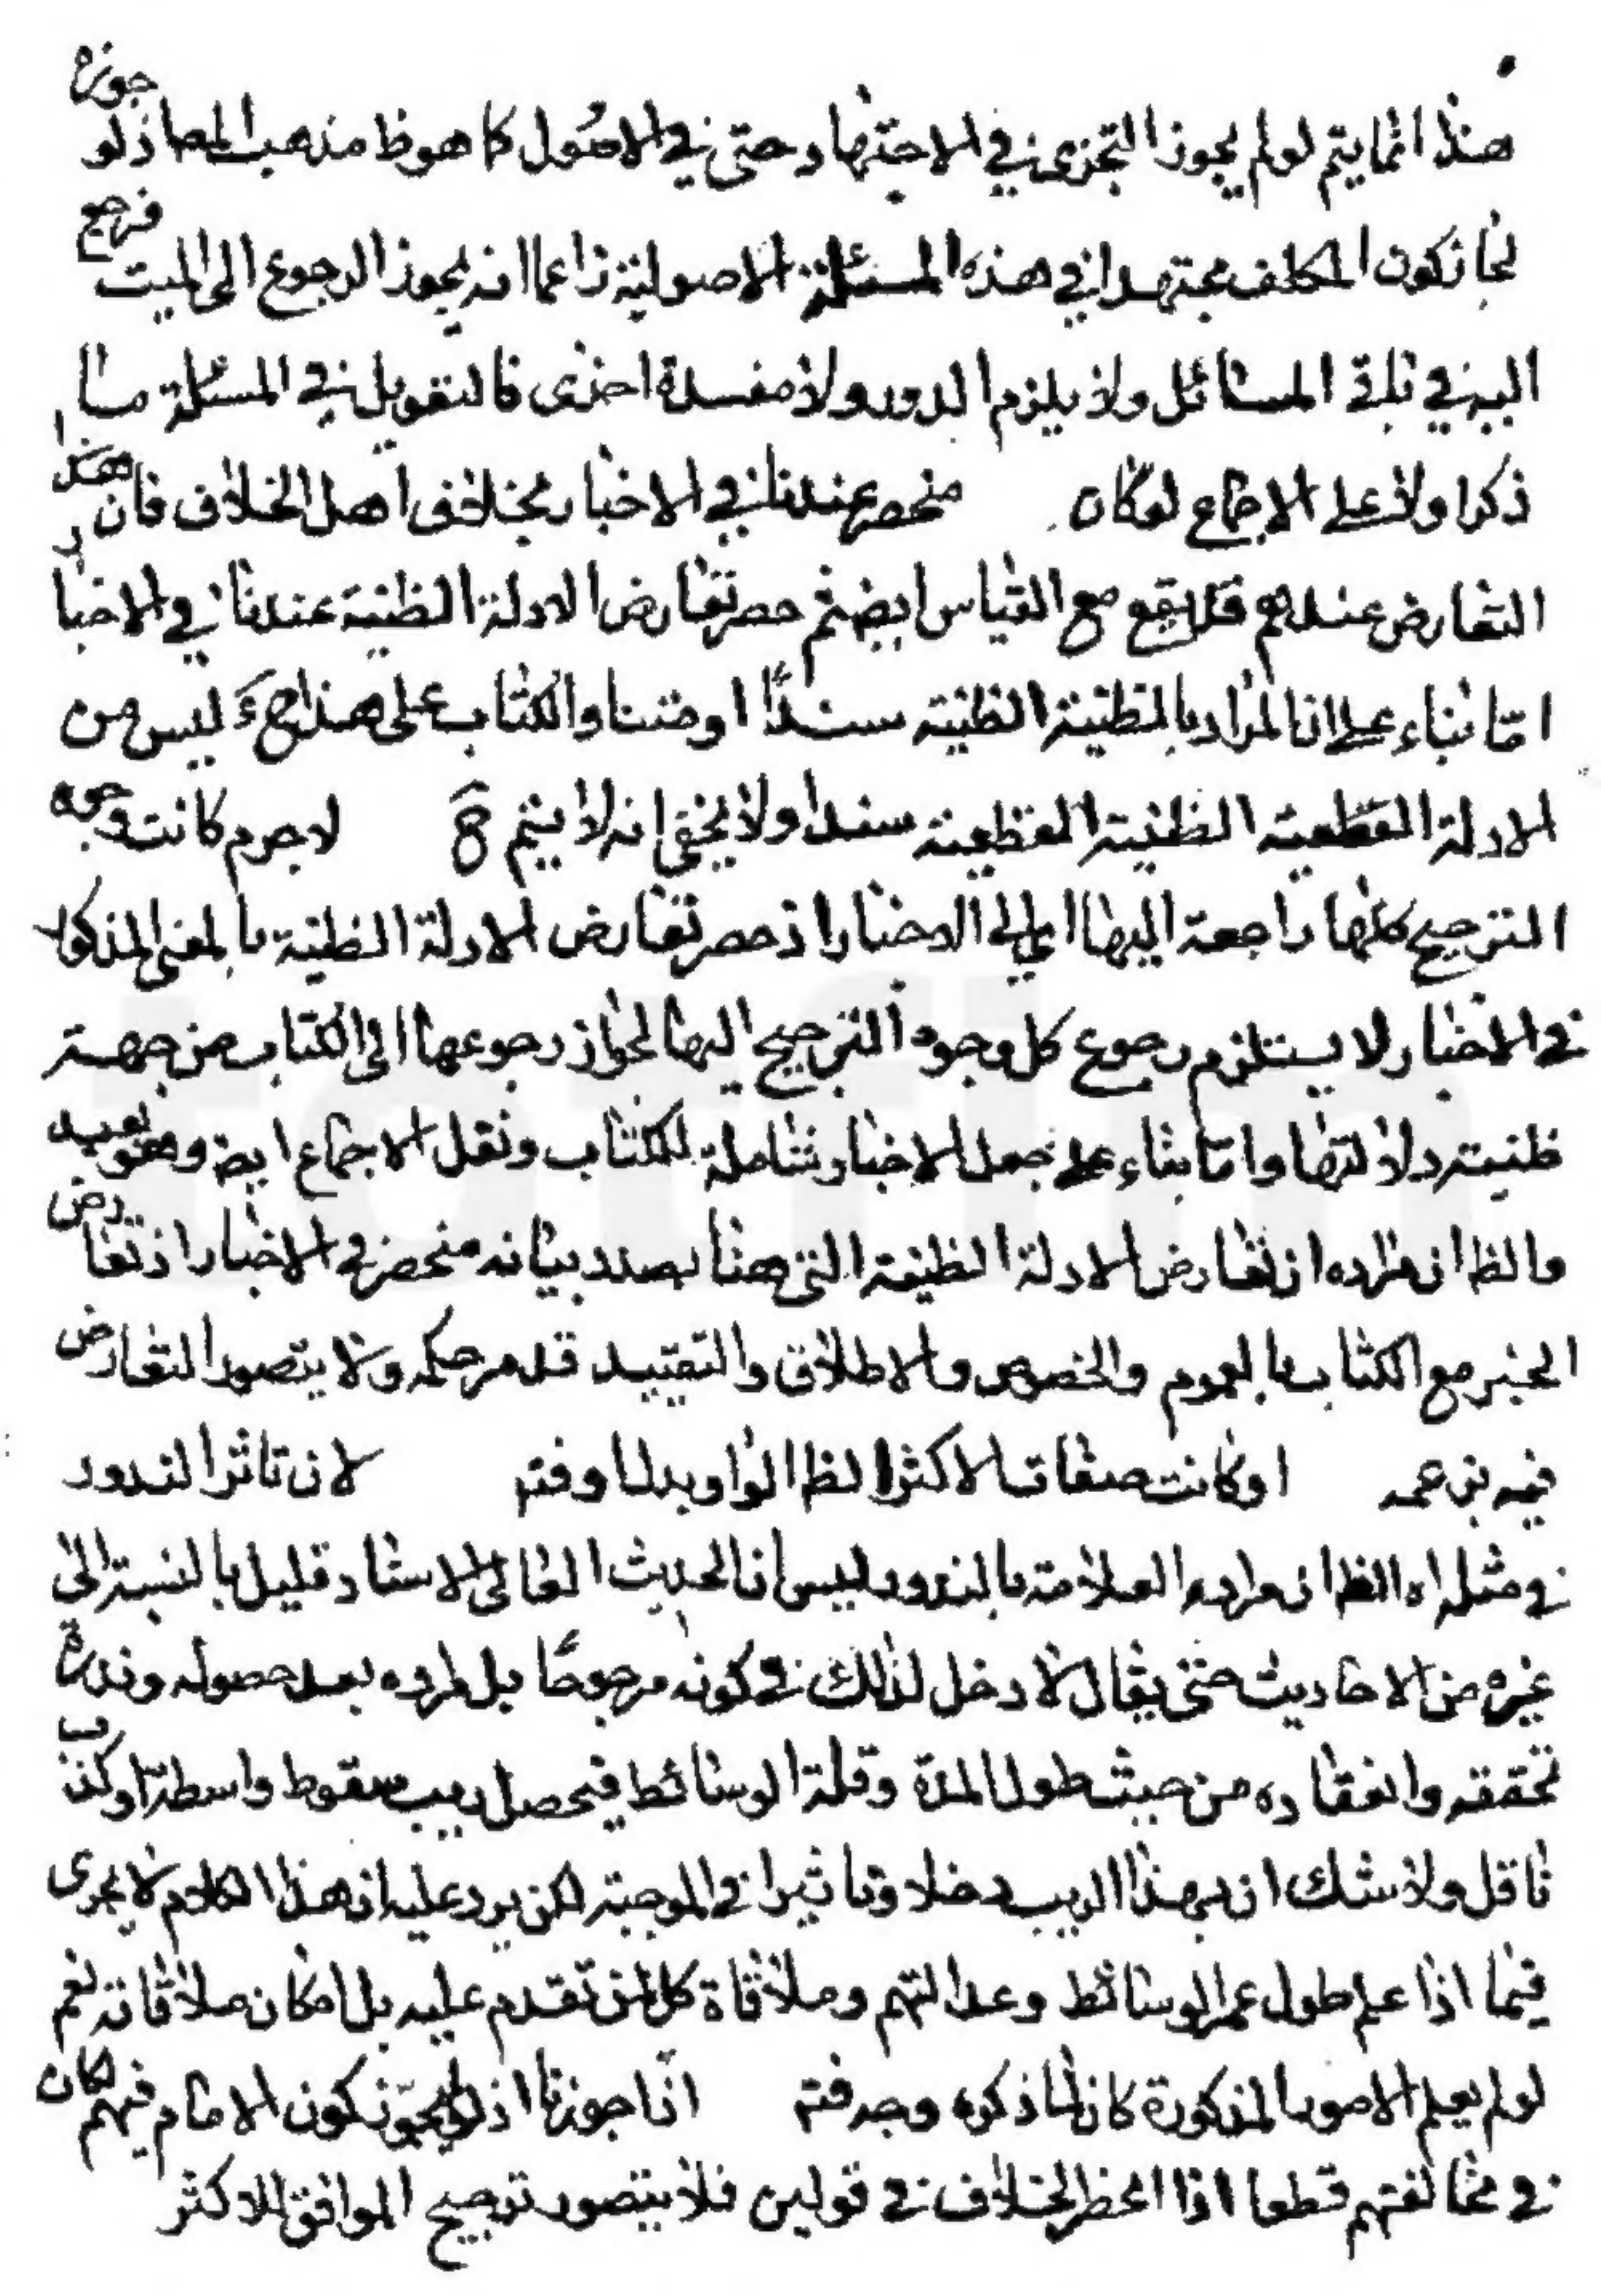 هذا انما يتم لو لم يجوز التجزي في الاجتهاد حتى في الاصول كما هو ظ مذهب المص اذ لو جوزه
لجاز كون المكلف مجتهدا في هذه المسئلة الاصولية زاعما انه يجوز الرجوع الى الميت فرجع
اليه في باقي المسائل ولا يلزم الدور ولا مفسدة اخرى فالتعويل في المسئلة مـا
ذكرا ولا على الاجماع لو كان منحصر عندنا في الاخبار بخلاف اهل الخلاف فان هذا
التعارض عندهم قد يقع مع القياس ايضا ثم حصر تعارض الادلة الظنية عندنا في الاخبار
اما بناء على ان المراد بالظنية الظنية سندا او متنا والكتاب على هذا ح ليس من
الادلة القطعية الظنية القطعية سندا ولا يخفى انه لا يتم ح لا جرم كانت وجوه
الترجيح كلها راجعة اليها اي الى الاخبار اذ حصر تعارض الادلة الظنية بالمعنى المذكور
في الاخبار لا يستلزم رجوع كل وجوه الترجيح اليها لجواز رجوعها الى الكتاب من جهة
ظنية دلالتها واما بناء على جعل الاخبار شاملة للكتاب ونقل الاجماع ايضا وهو بعيد
والظ ان مراده ان تعارض الادلة الظنية التي هنا بصدد بيانه منحصر في الاخبار اذ تعارض
الخبر مع الكتاب بالعموم والخصوص والاطلاق والتقييد قد مر حكمه ولا يتصور التعارض
فيه بزعمه او كانت صفات الاكثر الظ الواو بدل او فتم لان تاثر الندور
في مثله اه الظ ان مراد العلامة بالندور ليس ان الحديث العالي الاسناد قليل بالنسبة الى
غيره من الاحاديث حتى يقال لا دخل لذلك في كونه مرجوحا بل المراد بعد حصوله وندرة
تحققه وانعقاده من حيث طول المدة وقلة الوسائط فيحصل ريب سقوط واسطة او كذب
ناقل ولا شك ان بهذا الريب دخلا وتاثيرا في الموجبة لكن يرد عليه ان هذا الكلام لا يجرى
فيما اذا علم طول عمر الوسائط وعدالتهم وملاقاة كل لمن تقدم عليه بل امكان ملاقاته نعم
لو لم يعلم الامور المذكورة كان لما ذكره وجه فتم انا جوزنا اذ لو يجوز كون الامام فيهم لكان
في مخالفتهم قطعا اذا انحظر الخلاف في قولين فلا يتصور ترجيح الموافق للاكثر